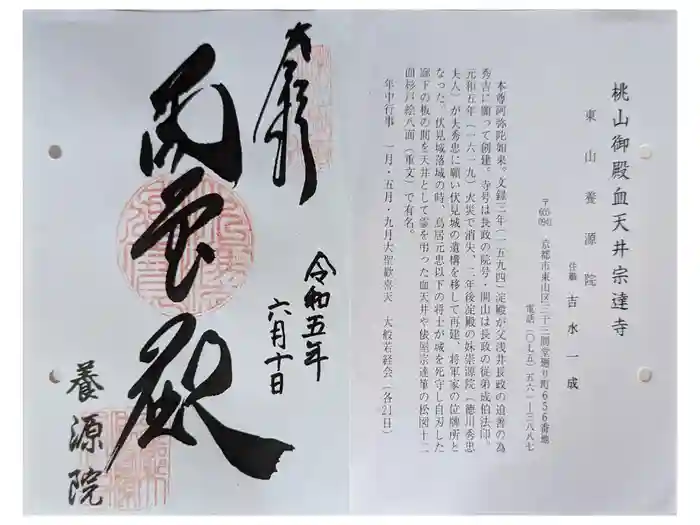 桃山御殿血天井宗達寺
東山 養源院
住職 吉水一成
〒605-0941 京都市東山区三十三間堂廻り町656番地
電話(〇七五)五六一ー三八八七
本尊阿弥陀如来。文録三年(一五九四)淀殿が父浅井長政の追善の為
秀吉に願って創建。寺号は長政の院号・開山は長政の従弟成伯法印。
元和五年(一六一九)火災で消失、二年後淀殿の妹崇源院(徳川秀忠
夫人)が大秀忠に願い伏見城の遺構を移して再建、将軍家の位牌所と
なった。伏見城落城の時、鳥居元忠以下の将士が城を死守し自刃した
廊下の板の間を天井として霊を弔った血天井や俵屋宗達筆の松図十二
面杉戸絵八面(重文)で有名。
年中行事 一月・五月・九月大聖歓喜天 大般若経会(各21日)
令和五年
六月十日
養源院